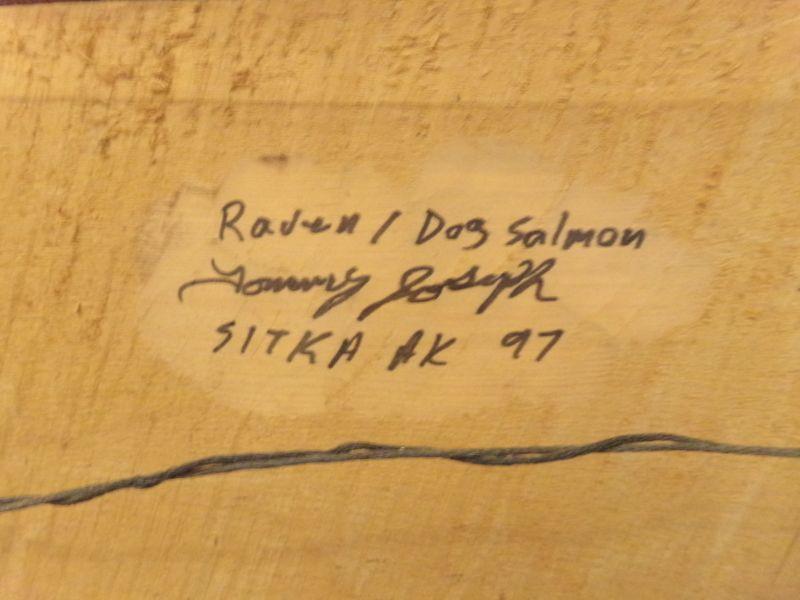 Raven / Dog Salmon
Tommy Joseph
SITKA AK 97